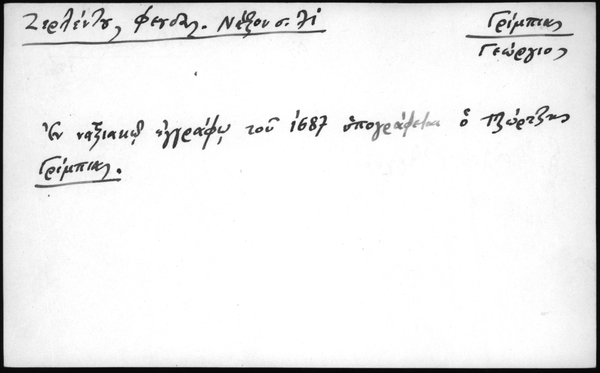 Ζερλέντου, Φεουδ. Νάξου σ. λί
Γρίμπιας
Γεώργιος
Ἐν ναξιακῷ ἐγγράφῳ τοῦ 1687 ὑπογράφεται ὁ Τζώρτζης
Γρίμπιας.